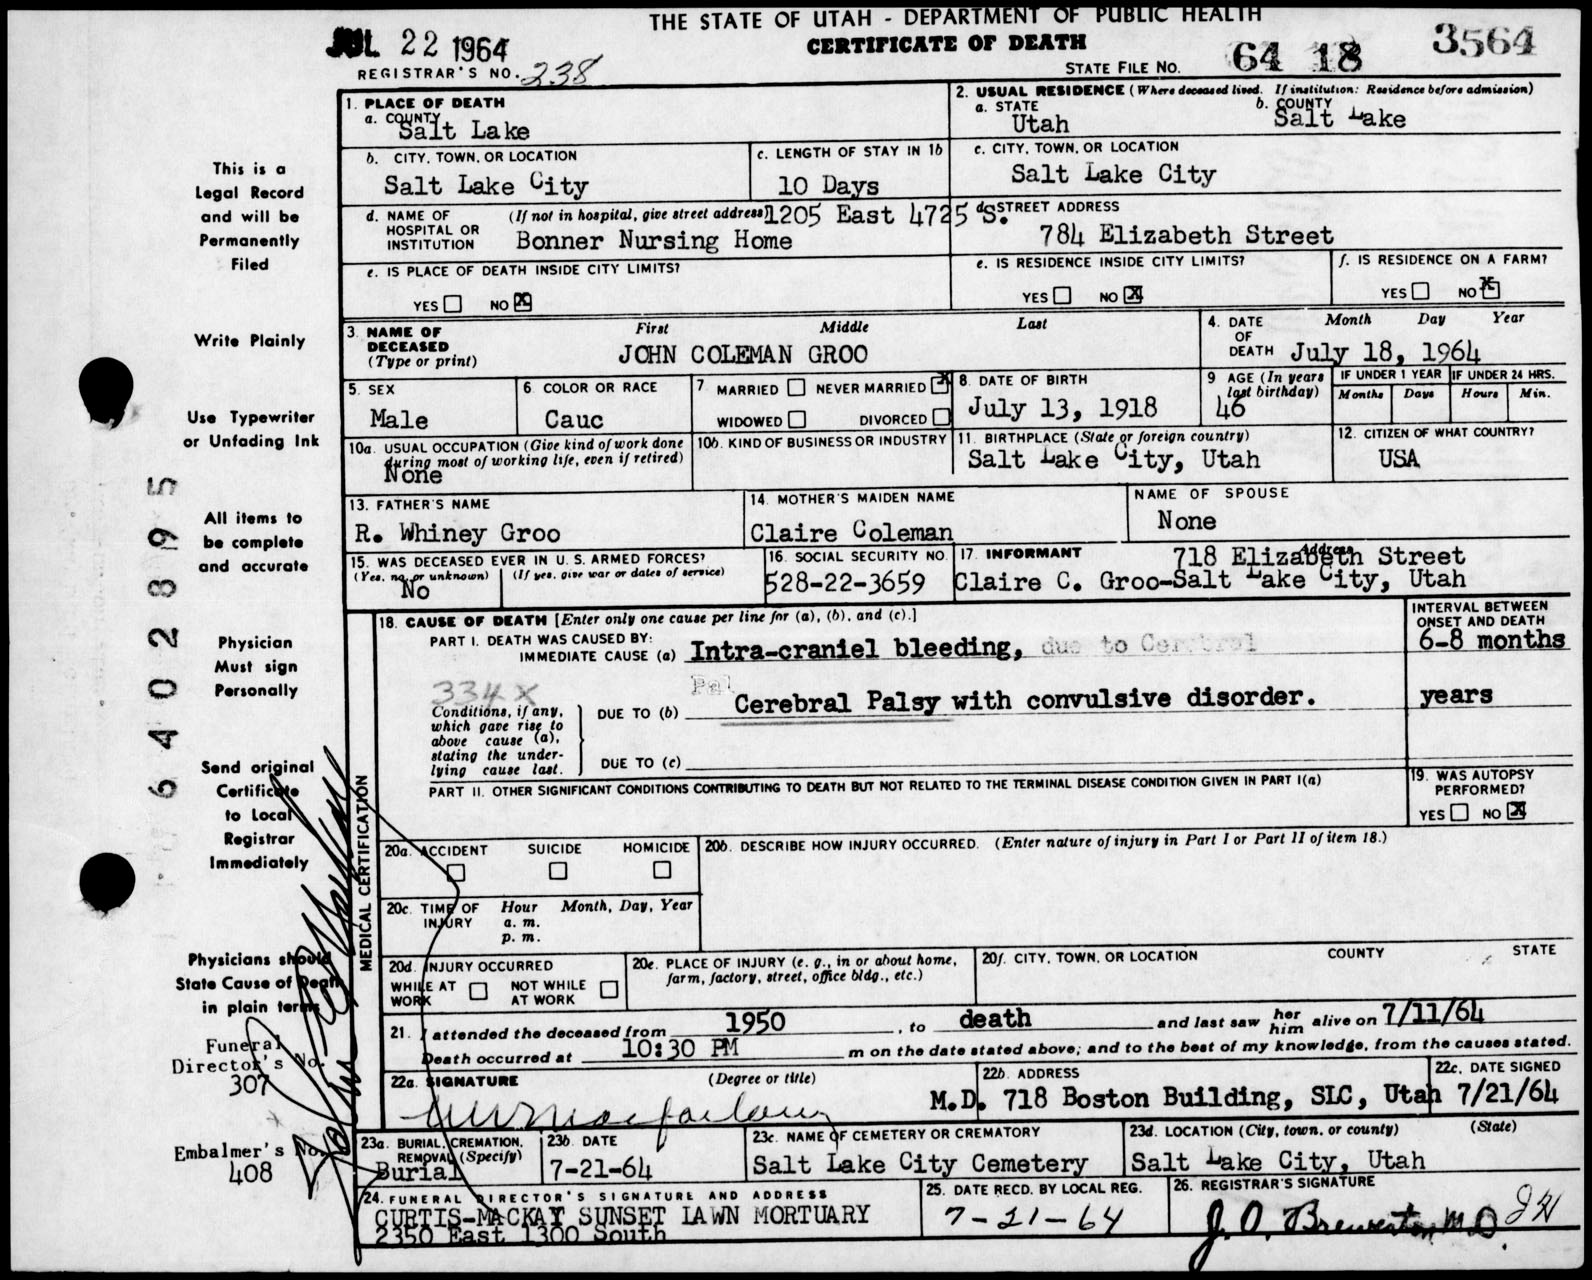 THE STATE OF UTAH - DEPARTMENT OF PUBLIC HEALTH
CERTIFICATE OF DEATH
JUL 22 1964
REGISTRAR'S NO. 238
STATE FILE NO. 64 18 3564
1. PLACE OF DEATH
a. COUNTY
Salt Lake
2. USUAL RESIDENCE (Where deceased lived. If institution: Residence before admission)
a. STATE
Utah
b. COUNTY
Salt Lake
b. CITY, TOWN, OR LOCATION
Salt Lake City
c. LENGTH OF STAY IN 1b
10 Days
c. CITY, TOWN, OR LOCATION
Salt Lake City
d. NAME OF HOSPITAL OR INSTITUTION
(If not in hospital, give street address) 1205 East 4725 S.
Bonner Nursing Home
d. STREET ADDRESS
784 Elizabeth Street
e. IS PLACE OF DEATH INSIDE CITY LIMITS?
YES NO X
e. IS RESIDENCE INSIDE CITY LIMITS?
YES NO X
f. IS RESIDENCE ON A FARM?
YES NO X
3. NAME OF DECEASED (Type or print)
First Middle Last
JOHN COLEMAN GROO
4. DATE OF DEATH
Month Day Year
July 18, 1964
5. SEX
Male
6. COLOR OR RACE
Cauc
7 MARRIED NEVER MARRIED X
WIDOWED DIVORCED
8. DATE OF BIRTH
July 13, 1918
9 AGE (In years last birthday)
46
IF UNDER 1 YEAR
Months Days
IF UNDER 24 HRS.
Hours Min.
10a. USUAL OCCUPATION (Give kind of work done during most of working life, even if retired)
None
10b. KIND OF BUSINESS OR INDUSTRY
11. BIRTHPLACE (State or foreign country)
Salt Lake City, Utah
12. CITIZEN OF WHAT COUNTRY?
USA
13. FATHER'S NAME
R. Whiney Groo
14. MOTHER'S MAIDEN NAME
Claire Coleman
NAME OF SPOUSE
None
15. WAS DECEASED EVER IN U. S. ARMED FORCES?
(Yes, no, or unknown) (If yes, give war or dates of service)
No
16. SOCIAL SECURITY NO.
528-22-3659
17. INFORMANT Address
718 Elizabeth Street
Claire C. Groo-Salt Lake City, Utah
MEDICAL CERTIFICATION
18. CAUSE OF DEATH [Enter only one cause per line for (a), (b), and (c).]
PART I. DEATH WAS CAUSED BY:
IMMEDIATE CAUSE (a) Intra-craniel bleeding, due to Cerebral
Pal
334 X
Conditions, if any, which gave rise to above cause (a), stating the underlying cause last.
DUE TO (b) Cerebral Palsy with convulsive disorder.
DUE TO (c)
INTERVAL BETWEEN ONSET AND DEATH
6-8 months
years
PART II. OTHER SIGNIFICANT CONDITIONS CONTRIBUTING TO DEATH BUT NOT RELATED TO THE TERMINAL DISEASE CONDITION GIVEN IN PART I(a)
19. WAS AUTOPSY PERFORMED?
YES NO X
20a. ACCIDENT SUICIDE HOMICIDE
20b. DESCRIBE HOW INJURY OCCURRED. (Enter nature of injury in Part I or Part II of item 18.)
20c. TIME OF INJURY
Hour Month, Day, Year
a. m.
p. m.
20d. INJURY OCCURRED
WHILE AT WORK NOT WHILE AT WORK
20e. PLACE OF INJURY (e. g., in or about home, farm, factory, street, office bldg., etc.)
20f. CITY, TOWN, OR LOCATION COUNTY STATE
21. I attended the deceased from 1950, to death and last saw her him alive on 7/11/64
Death occurred at 10:30 PM m on the date stated above; and to the best of my knowledge, from the causes stated.
22a. SIGNATURE (Degree or title)
M.D.
22b. ADDRESS
718 Boston Building, SLC, Utah
22c. DATE SIGNED
7/21/64
23a. BURIAL, CREMATION, REMOVAL (Specify)
Burial
23b. DATE
7-21-64
23c. NAME OF CEMETERY OR CREMATORY
Salt Lake City Cemetery
23d. LOCATION (City, town, or county) (State)
Salt Lake City, Utah
24. FUNERAL DIRECTOR'S SIGNATURE AND ADDRESS
CURTIS-MACKAY SUNSET LAWN MORTUARY
2350 East 1300 South
25. DATE RECD. BY LOCAL REG.
7-21-64
26. REGISTRAR'S SIGNATURE
J. O. Brewerton M.D.
This is a
Legal Record
and will be
Permanently
Filed
Write Plainly
Use Typewriter
or Unfading Ink
All items to
be complete
and accurate
Physician
Must sign
Personally
Send original
Certificate
to Local
Registrar
Immediately
Physicians should
State Cause of Death
in plain terms
Funeral
Director's No.
307
Embalmer's No.
408
6402895